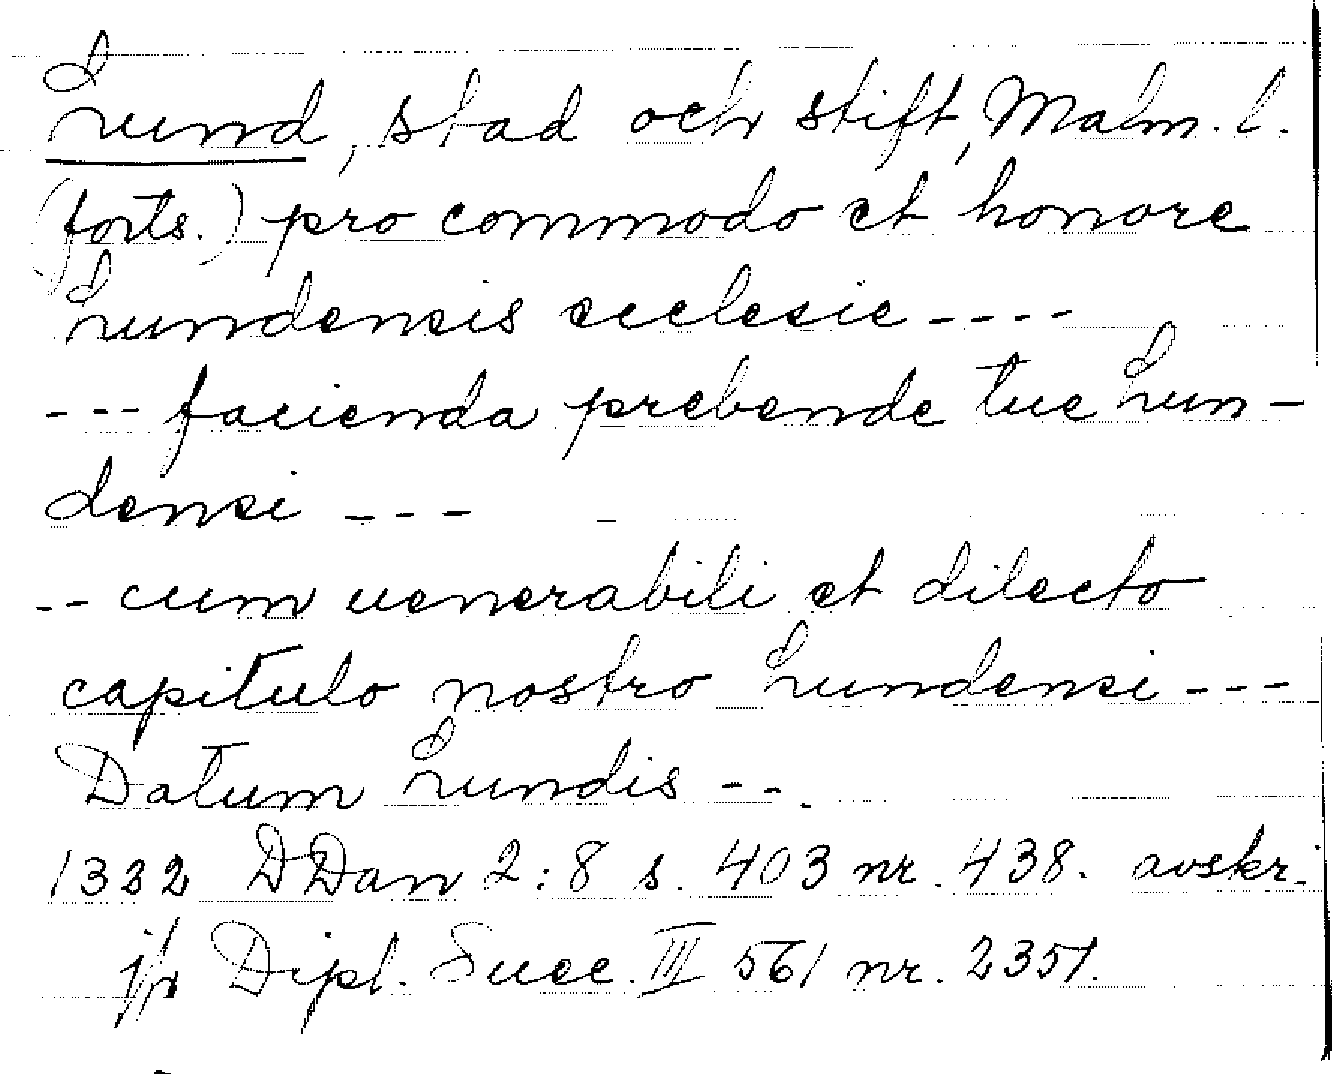 Lund, stad och stift, Malm. l.
(forts.) pro commodo et honore
Lundensis ecclesie ----
--- facienda prebende tue Lun-
densi ---
-- cum uenerabili et dilecto
capitulo nostro Lundensi ---
Datum Lundis --.
1322 DDan 2:8 s. 403 nr. 438. avskr.
jfr Dipl. Suec. III 561 nr. 2351.